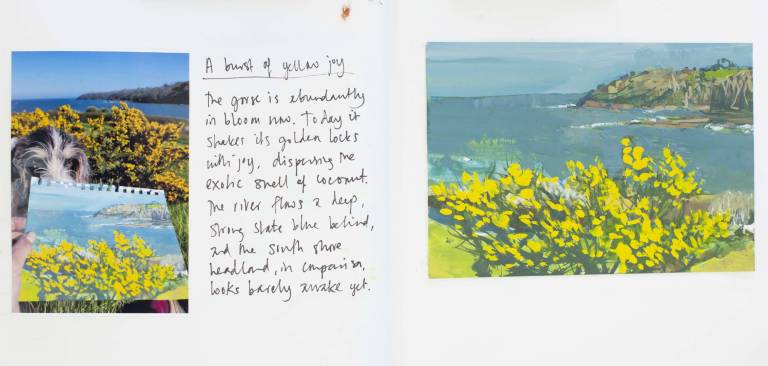 A burst of yellow joy
The gorse is abundantly
in bloom now. Today it
shakes its golden locks
with joy, dispersing the
exotic smell of coconut.
The river flows a deep,
strong slate blue behind,
and the south shore
headland, in comparison,
looks barely awake yet.